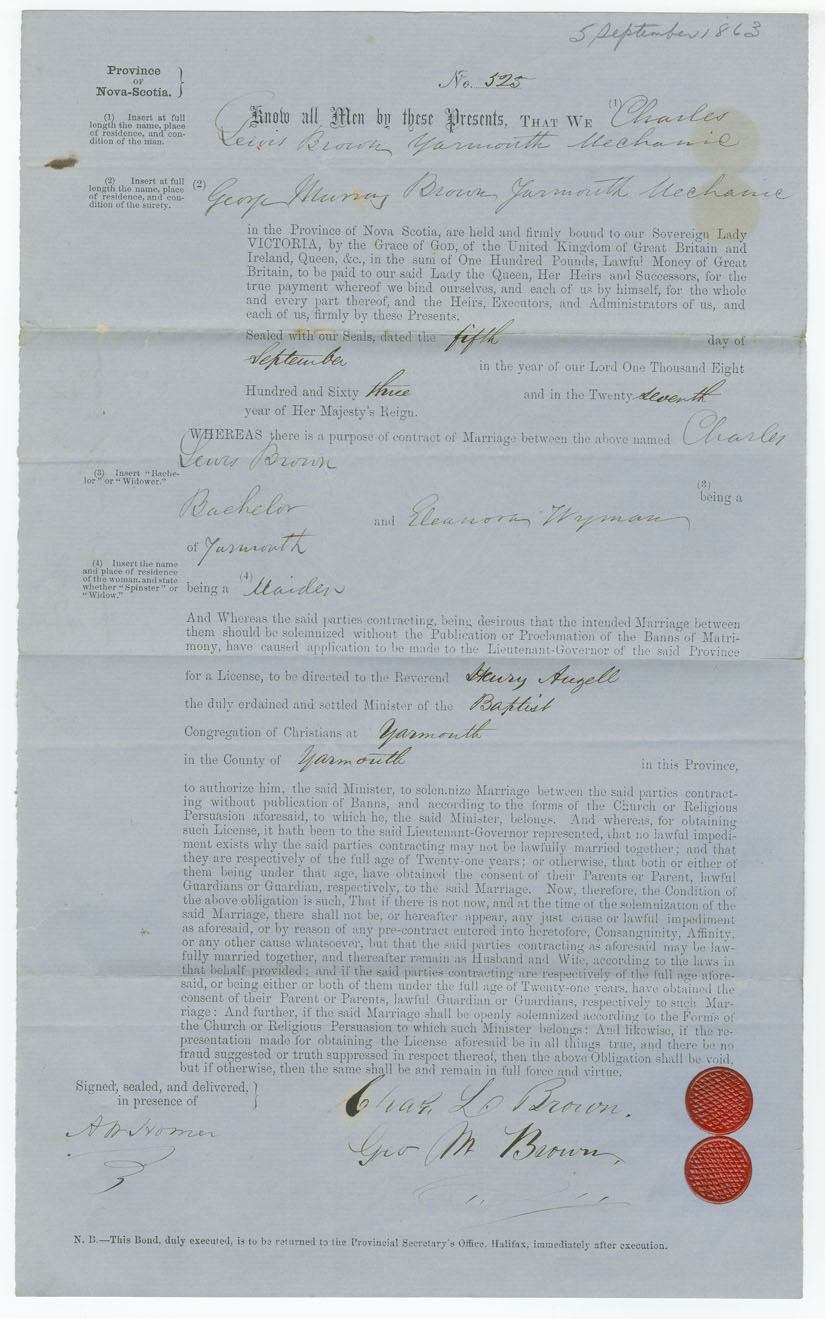 5 September 1863
Province
OF
Nova-Scotia.
No. 525
(1) Insert at full
length the name, place
of residence, and con-
dition of the man.
Know all Men by these Presents, THAT WE (1) Charles
Lewis Brown Yarmouth Mechanic
(2) Insert at full
length the name, place
of residence, and con-
dition of the surety.
(2) George Murray Brown Yarmouth Mechanic
in the Province of Nova Scotia, are held and firmly bound to our Sovereign Lady
VICTORIA, by the Grace of GOD, of the United Kingdom of Great Britain and
Ireland, Queen, &c., in the sum of One Hundred Pounds, Lawful Money of Great
Britain, to be paid to our said Lady the Queen, Her Heirs and Successors, for the
true payment whereof we bind ourselves, and each of us by himself, for the whole
and every part thereof, and the Heirs, Executors, and Administrators of us, and
each of us, firmly by these Presents.
Sealed with our Seals, dated the fifth day of
September in the year of our Lord One Thousand Eight
Hundred and Sixty three and in the Twenty seventh
year of Her Majesty's Reign.
WHEREAS there is a purpose of contract of Marriage between the above named Charles
Lewis Brown
(3) Insert "Bache-
lor" or "Widower."
(3)
being a
Bachelor and Eleanora Wyman
of Yarmouth
(4) Insert the name
and place of residence
of the woman, and state
whether "Spinster" or
"Widow."
being a (4) Maiden
And Whereas the said parties contracting, being desirous that the intended Marriage between
them should be solemnized without the Publication or Proclamation of the Banns of Matri-
mony, have caused application to be made to the Lieutenant-Governor of the said Province
for a License, to be directed to the Reverend Henry Angell
the duly ordained and settled Minister of the Baptist
Congregation of Christians at Yarmouth
in the County of Yarmouth in this Province,
to authorize him, the said Minister, to solemnize Marriage between the said parties contract-
ing without publication of Banns, and according to the forms of the Church or Religious
Persuasion aforesaid, to which he, the said Minister, belongs. And whereas, for obtaining
such License, it hath been to the said Lieutenant-Governor represented, that no lawful impedi-
ment exists why the said parties contracting may not be lawfully married together; and that
they are respectively of the full age of Twenty-one years; or otherwise, that both or either of
them being under that age, have obtained the consent of their Parents or Parent, lawful
Guardians or Guardian, respectively, to the said Marriage. Now, therefore, the Condition of
the above obligation is such, That if there is not now, and at the time of the solemnization of the
said Marriage, there shall not be, or hereafter appear, any just cause or lawful impediment
as aforesaid, or by reason of any pre-contract entered into heretofore, Consanguinity, Affinity,
or any other cause whatsoever, but that the said parties contracting as aforesaid may be law-
fully married together, and thereafter remain as Husband and Wife, according to the laws in
that behalf provided; and if the said parties contracting are respectively of the full age afore-
said, or being either or both of them under the full age of Twenty-one years, have obtained the
consent of their Parent or Parents, lawful Guardian or Guardians, respectively to such Mar-
riage: And further, if the said Marriage shall be openly solemnized according to the Forms of
the Church or Religious Persuasion to which such Minister belongs: And likewise, if the re-
presentation made for obtaining the License aforesaid be in all things true, and there be no
fraud suggested or truth suppressed in respect thereof, then the above Obligation shall be void,
but if otherwise, then the same shall be and remain in full force and virtue.
Signed, sealed, and delivered,
in presence of
Chas. L. Brown.
A W Homer
Geo M Brown
N. B.—This Bond, duly executed, is to be returned to the Provincial Secretary's Office, Halifax, immediately after execution.